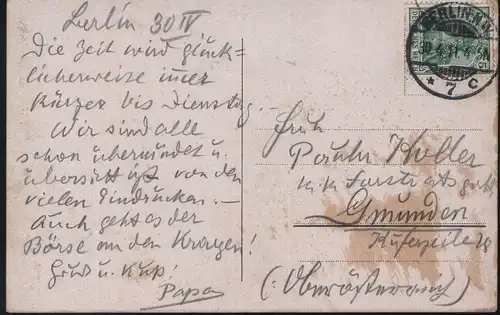 Berlin 30 IV
Die Zeit wird glück-
licherweise immer
kürzer bis Dienstag.
Wir sind alle
schon übermüdet u.
übersättigt von den
vielen Eindrücken. —
Auch geht es der
Börse an den Kragen!
Gruß u. Kuß!
Papa
BERLIN N.W.
30.4.11.4-5N.
* 7 c
5
Paula Koller
k. k. Forstrats
Gmunden
(: Oberösterreich :)